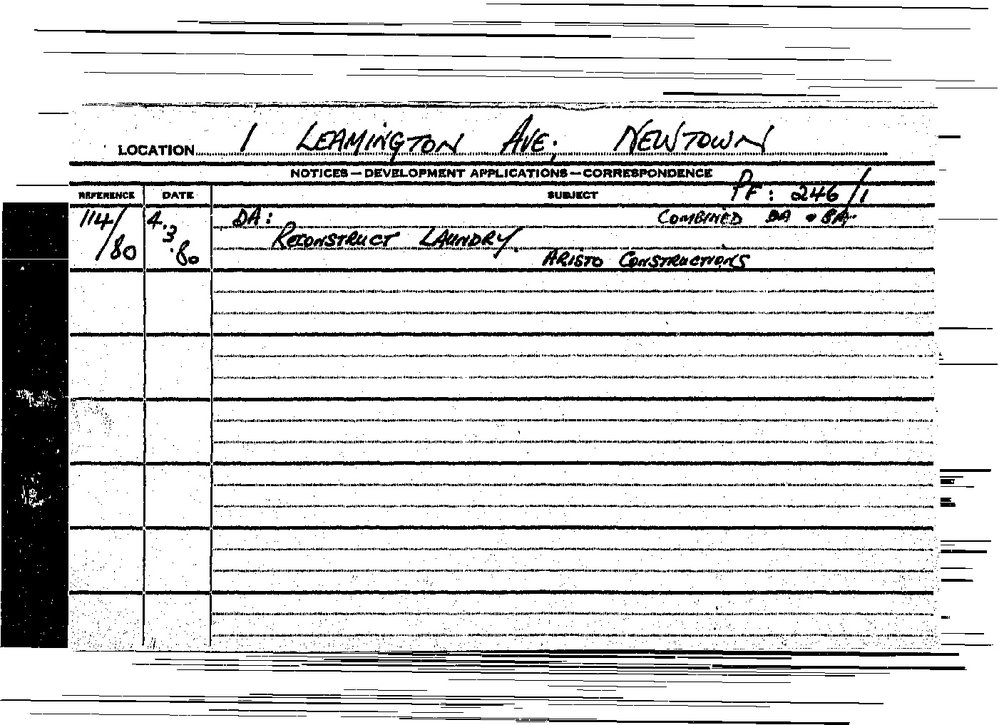 LOCATION 1 LEAMINGTON AVE. NEWTOWN
NOTICES — DEVELOPMENT APPLICATIONS — CORRESPONDENCE
REFERENCE DATE SUBJECT PF: 246/1
114/80 4.3.80 DA: COMBINED DA & BA.
RECONSTRUCT LAUNDRY.
ARISTO CONSTRUCTIONS